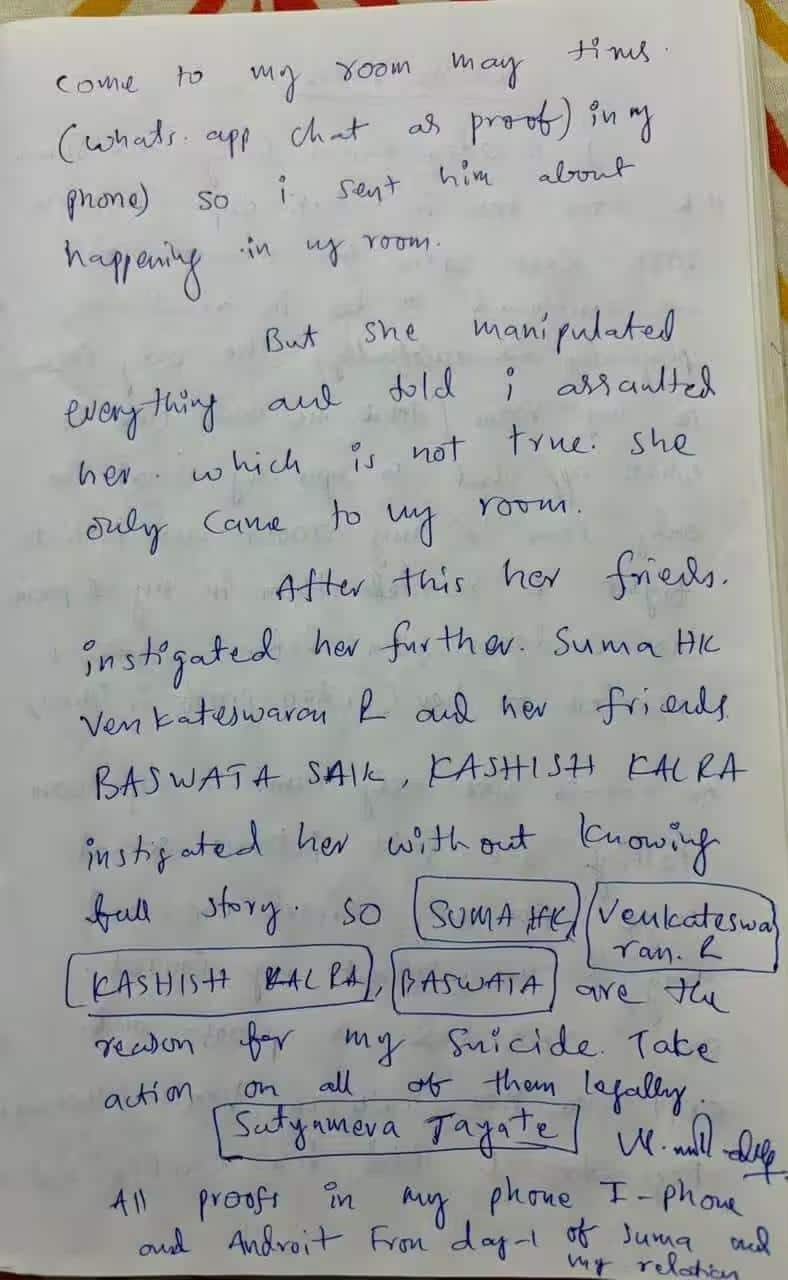 come to my room may tims.
(whats. app chat as proof) in my
phone) so i sent him about
happening in my room.
But she manipulated
everything and told i assaulted
her. which is not true. she
only came to my room.
After this her frieds.
instigated her further. Suma HK
Venkateswaran R and her friends
BASWATA SAIK, KASHISH KALRA
instigated her without knowing
full story. so SUMA HK, Venkateswa
ran. R
KASHISH KALRA, BASWATA are the
reason for my suicide. Take
action on all of them legally.
Satyameva Jayate
All proofs in my phone I-phone
and Androit Fron day-1 of Suma and
my relation